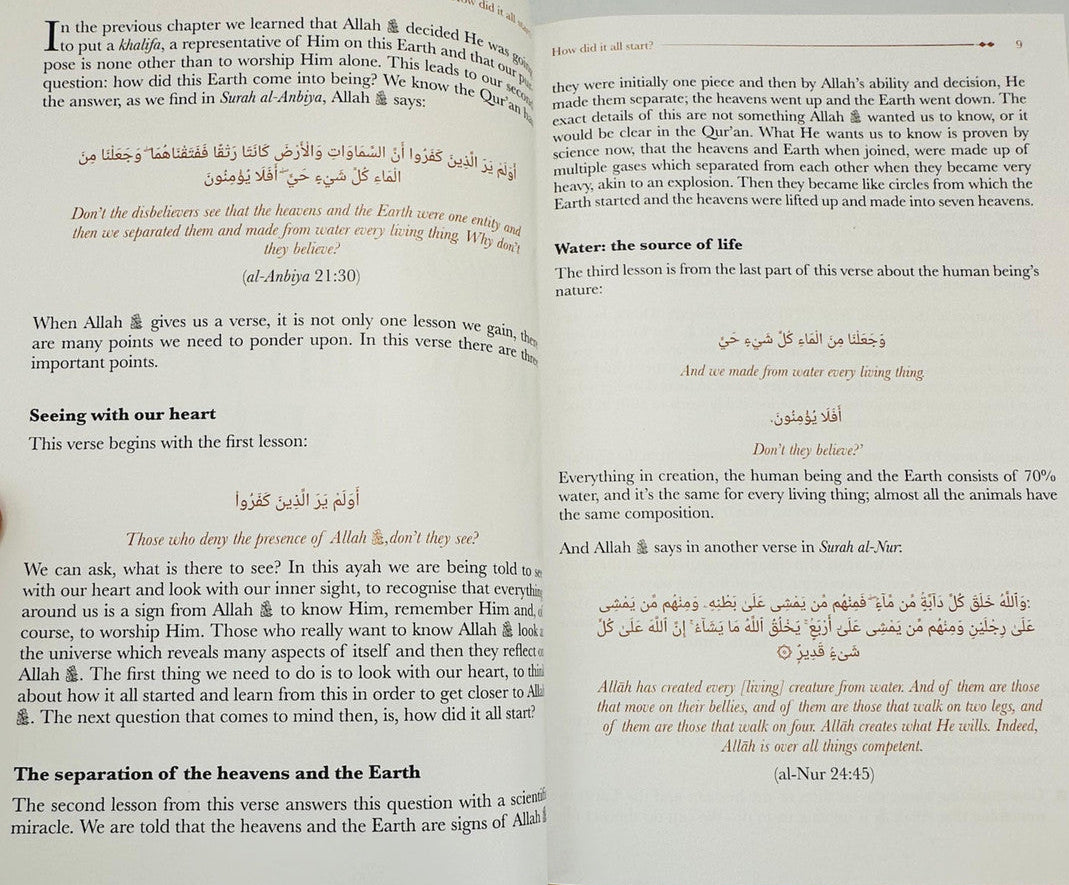 How did it all start?
In the previous chapter we learned that Allah ﷻ decided He was going
to put a khalifa, a representative of Him on this Earth and that our pur-
pose is none other than to worship Him alone. This leads to our second
question: how did this Earth come into being? We know the Qur'an has
the answer, as we find in Surah al-Anbiya, Allah ﷻ says:
أَوَلَمْ يَرَ الَّذِينَ كَفَرُوا أَنَّ السَّمَاوَاتِ وَالْأَرْضَ كَانَتَا رَتْقًا فَفَتَقْنَاهُمَا ۖ وَجَعَلْنَا مِنَ
الْمَاءِ كُلَّ شَيْءٍ حَيٍّ ۖ أَفَلَا يُؤْمِنُونَ
Don't the disbelievers see that the heavens and the Earth were one entity and
then we separated them and made from water every living thing. Why don't
they believe?
(al-Anbiya 21:30)
When Allah ﷻ gives us a verse, it is not only one lesson we gain, there
are many points we need to ponder upon. In this verse there are three
important points.
Seeing with our heart
This verse begins with the first lesson:
أَوَلَمْ يَرَ الَّذِينَ كَفَرُوا
Those who deny the presence of Allah ﷻ, don't they see?
We can ask, what is there to see? In this ayah we are being told to see
with our heart and look with our inner sight, to recognise that everything
around us is a sign from Allah ﷻ to know Him, remember Him and, of
course, to worship Him. Those who really want to know Allah ﷻ look at
the universe which reveals many aspects of itself and then they reflect on
Allah ﷻ. The first thing we need to do is to look with our heart, to think
about how it all started and learn from this in order to get closer to Allah
ﷻ. The next question that comes to mind then, is, how did it all start?
The separation of the heavens and the Earth
The second lesson from this verse answers this question with a scientific
miracle. We are told that the heavens and the Earth are signs of Allah ﷻ
How did it all start? 9
they were initially one piece and then by Allah's ability and decision, He
made them separate; the heavens went up and the Earth went down. The
exact details of this are not something Allah ﷻ wanted us to know, or it
would be clear in the Qur'an. What He wants us to know is proven by
science now, that the heavens and Earth when joined, were made up of
multiple gases which separated from each other when they became very
heavy, akin to an explosion. Then they became like circles from which the
Earth started and the heavens were lifted up and made into seven heavens.
Water: the source of life
The third lesson is from the last part of this verse about the human being's
nature:
وَجَعَلْنَا مِنَ الْمَاءِ كُلَّ شَيْءٍ حَيٍّ
And we made from water every living thing.
أَفَلَا يُؤْمِنُونَ.
Don't they believe?'
Everything in creation, the human being and the Earth consists of 70%
water, and it's the same for every living thing; almost all the animals have
the same composition.
And Allah ﷻ says in another verse in Surah al-Nur:
:وَٱللَّهُ خَلَقَ كُلَّ دَآبَّةٍ مِّن مَّآءٍ ۖ فَمِنْهُم مَّن يَمْشِى عَلَىٰ بَطْنِهِۦ وَمِنْهُم مَّن يَمْشِى
عَلَىٰ رِجْلَيْنِ وَمِنْهُم مَّن يَمْشِى عَلَىٰٓ أَرْبَعٍ ۚ يَخْلُقُ ٱللَّهُ مَا يَشَآءُ ۚ إِنَّ ٱللَّهَ عَلَىٰ كُلِّ
شَىْءٍ قَدِيرٌ ۞
Allāh has created every [living] creature from water. And of them are those
that move on their bellies, and of them are those that walk on two legs, and
of them are those that walk on four. Allāh creates what He wills. Indeed,
Allāh is over all things competent.
(al-Nur 24:45)